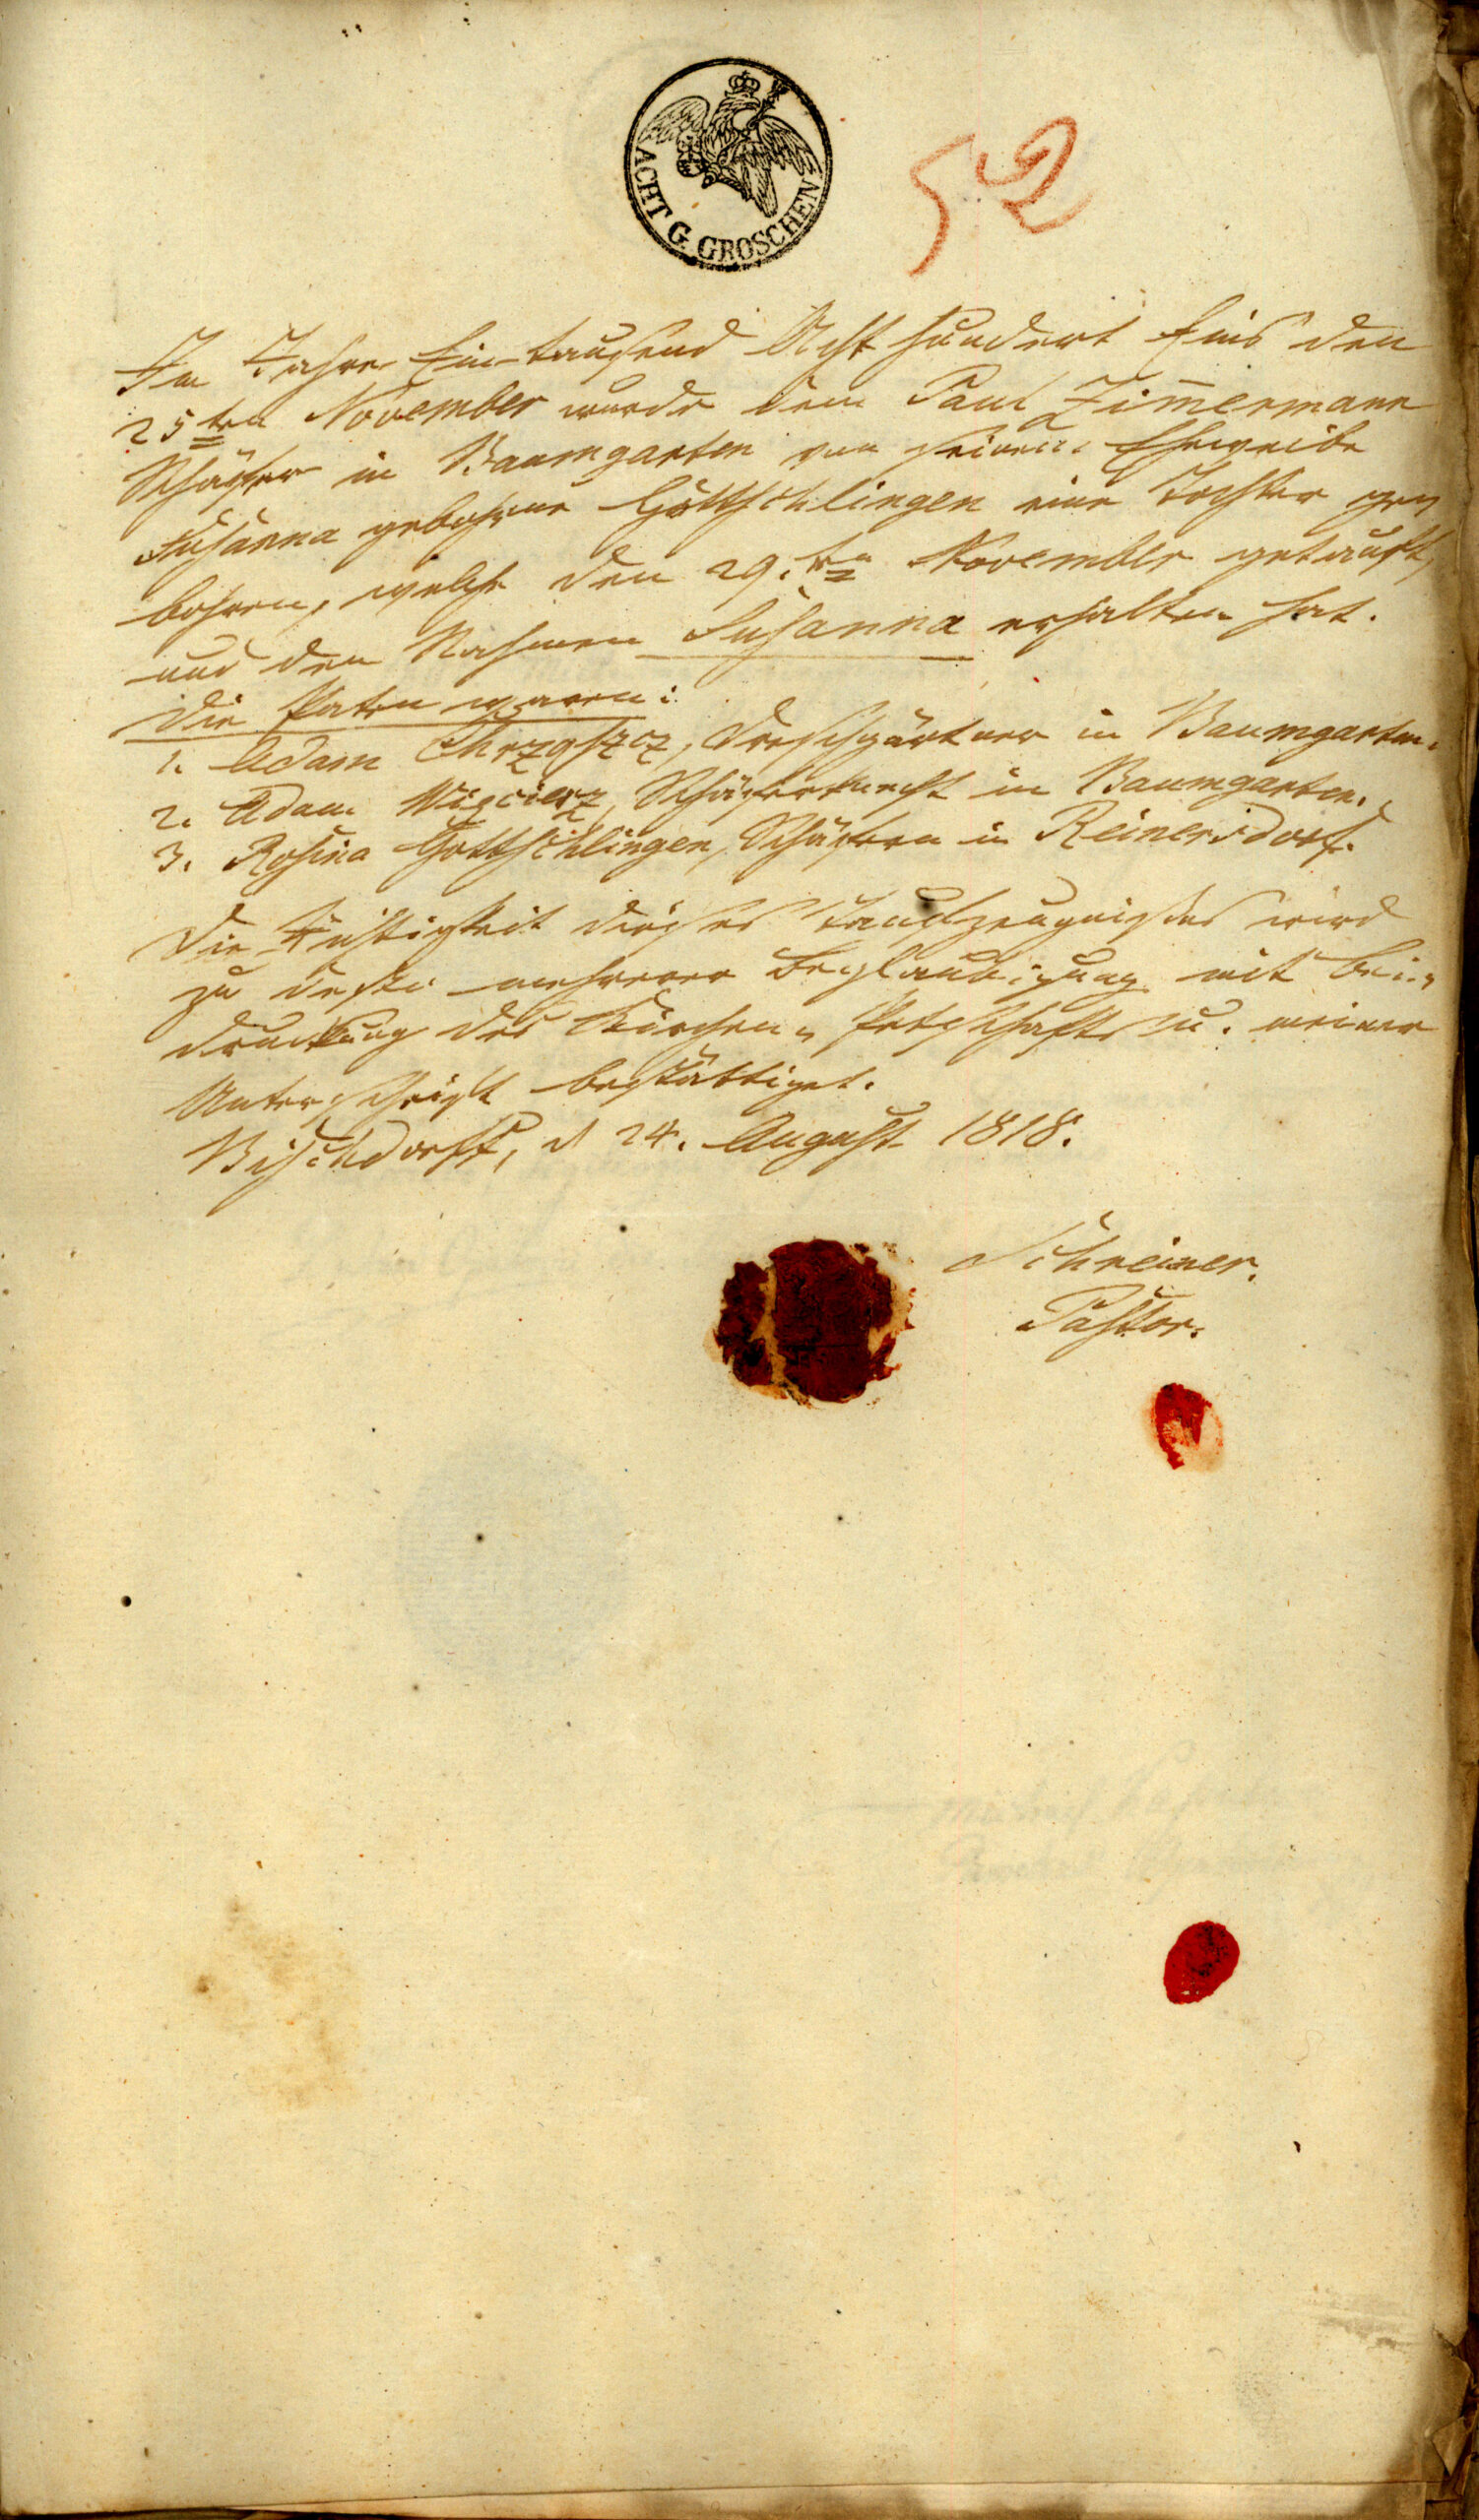 ACHT G. GROSCHEN
52
Im Jahre Ein tausend Acht hundert Eins den
25ten November wurde dem Paul Zim̄ermann
Schäfer in Baumgarten von seinem Eheweibe
Susanna gebohrne Gottschlingen eine Tochter ge„
bohren, welche den 29.ten November getauft,
und den Nahmen Susanna erhalten hat.
Die Paten waren:
1. Adam Chrząszcz, Dreschgärtner in Baumgarten.
2. Adam Schäferknecht in Baumgarten.
3. Rosina Gottschlingen, Schäferin in Reinersdorf.
Die Richtigkeit dieses Taufzeugnisses wird
zu desto mehrerer Beglaubigung mit Bei„
druckung des Kirchen„ Petschafts u. meiner
Unterschrift bestättiget.
Bischdorff, d 24. August 1818.
Schreiner.
Pastor.